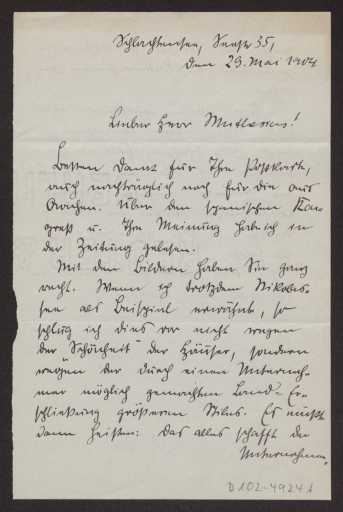 Schlachtensee, Seestr 35,
den 29. Mai 1904
Lieber Herr Muthesius!
Besten Dank für Ihre Postkarte,
auch nachträglich noch für die aus
Aachen. Über den spanischen Kon
greß u. Ihre Meinung habe ich in
der Zeitung gelesen.
Mit den Bildern haben Sie ganz
recht. Wenn ich trotzdem Nikolas-
see als Beispiel erwähnte, so
schlug ich dies vor nicht wegen
der "Schönheit" der Häuser, sondern
wegen der durch einen Unterneh-
mer möglich gemachten Land-Er-
schließung größeren Stiles. Es müßte
dann heißen: Das alles schafft der
Unternehmer,
D102-4924a